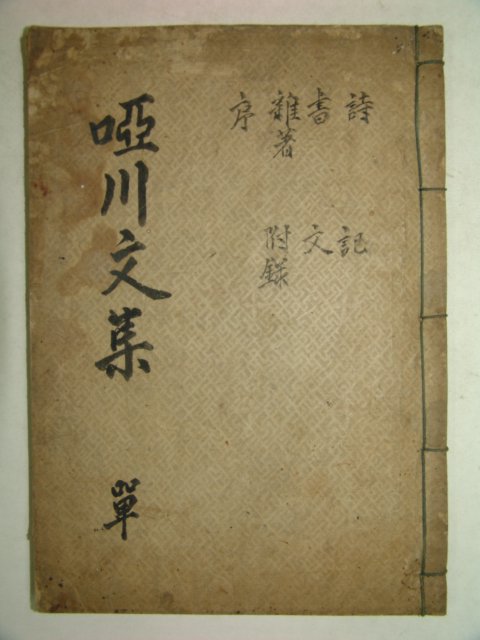 詩
書
雜著
序
記
文
附錄
啞川文集 單